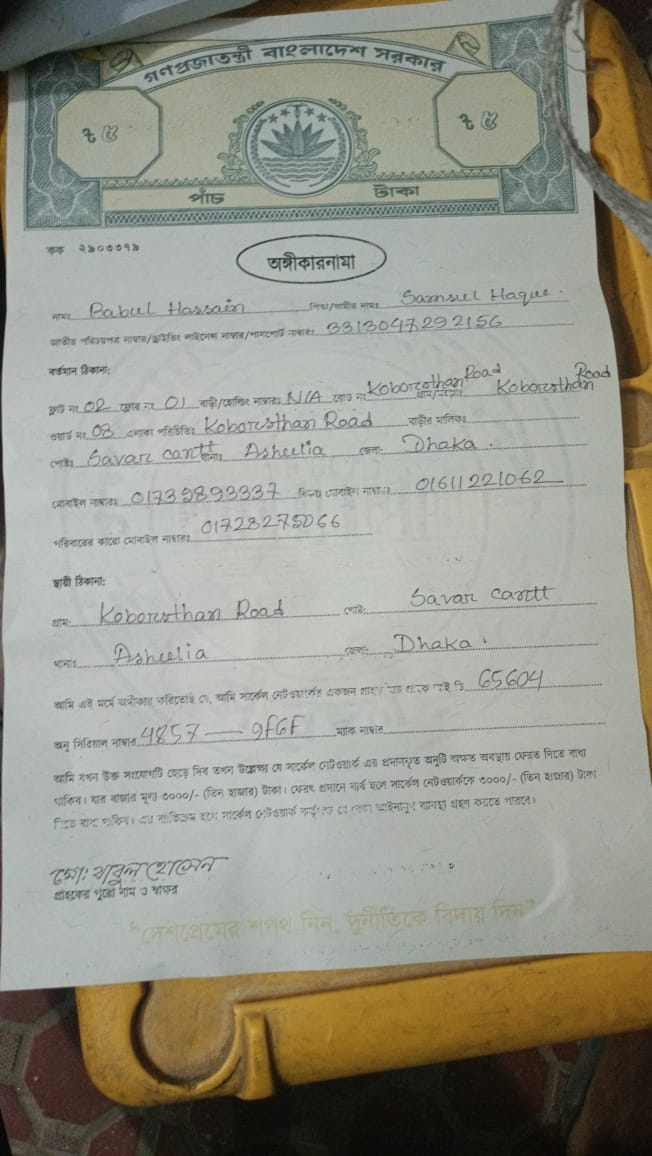 গণপ্রজাতন্ত্রী বাংলাদেশ সরকার
৳ ৫ ৳ ৫
পাঁচ টাকা
কক ২৯০৩৩৭৯
অঙ্গীকারনামা
নামঃ Babul Hassain পিতা/স্বামীর নামঃ Samsul Haque.
জাতীয় পরিচয়পত্র নাম্বার/ড্রাইভিং লাইসেন্স নাম্বার/পাসপোর্ট নাম্বারঃ 3313047292156
বর্তমান ঠিকানা:
ফ্লাট নং 02 ফ্লোর নং 01 বাড়ী/হোল্ডিং নাম্বারঃ N/A রোড নং Koborsthan Road গ্রাম/মহল্লাঃ Koborsthan Road
ওয়ার্ড নং 08 এলাকা পরিচিতিঃ Koborsthan Road বাড়ীর মালিকঃ
পোষ্টঃ Savar cantt থানাঃ Asheulia জেলা: Dhaka.
মোবাইল নাম্বারঃ 01735893337 বিকল্প মোবাইল নাম্বারঃ 01611221062
পরিবারের কারো মোবাইল নাম্বারঃ 01728275066
স্থায়ী ঠিকানা:
গ্রাম: Koborsthan Road পোষ্ট: Savar cantt
থানাঃ Asheulia জেলা: Dhaka.
আমি এই মর্মে অঙ্গীকার করিতেছি যে, আমি সার্কেল নেটওয়ার্কের একজন গ্রাহক যার গ্রাহক আই ডি 65604
অনু সিরিয়াল নাম্বার 4857 — 9FGF ম্যাক নাম্বার
আমি যখন উক্ত সংযোগটি ছেড়ে দিব তখন উল্লেক্ষ্য যে সার্কেল নেটওয়ার্ক এর প্রদানকৃত অনুটি অক্ষত অবস্থায় ফেরত দিতে বাধ্য
থাকিব। যার বাজার মূল্য ৩০০০/- (তিন হাজার) টাকা। ফেরৎ প্রদানে ব্যর্থ হলে সার্কেল নেটওয়ার্ককে ৩০০০/- (তিন হাজার) টাকা
দিতে বাধ্য থাকিব। এর ব্যতিক্রম হলে সার্কেল নেটওয়ার্ক কর্তৃপক্ষ যে কোন আইনানুগ ব্যবস্থা গ্রহণ করতে পারবে।
মো: বাবুল হোসেন
গ্রাহকের পুরো নাম ও স্বাক্ষর
"দেশপ্রেমের শপথ নিন, দুর্নীতিকে বিদায় দিন"